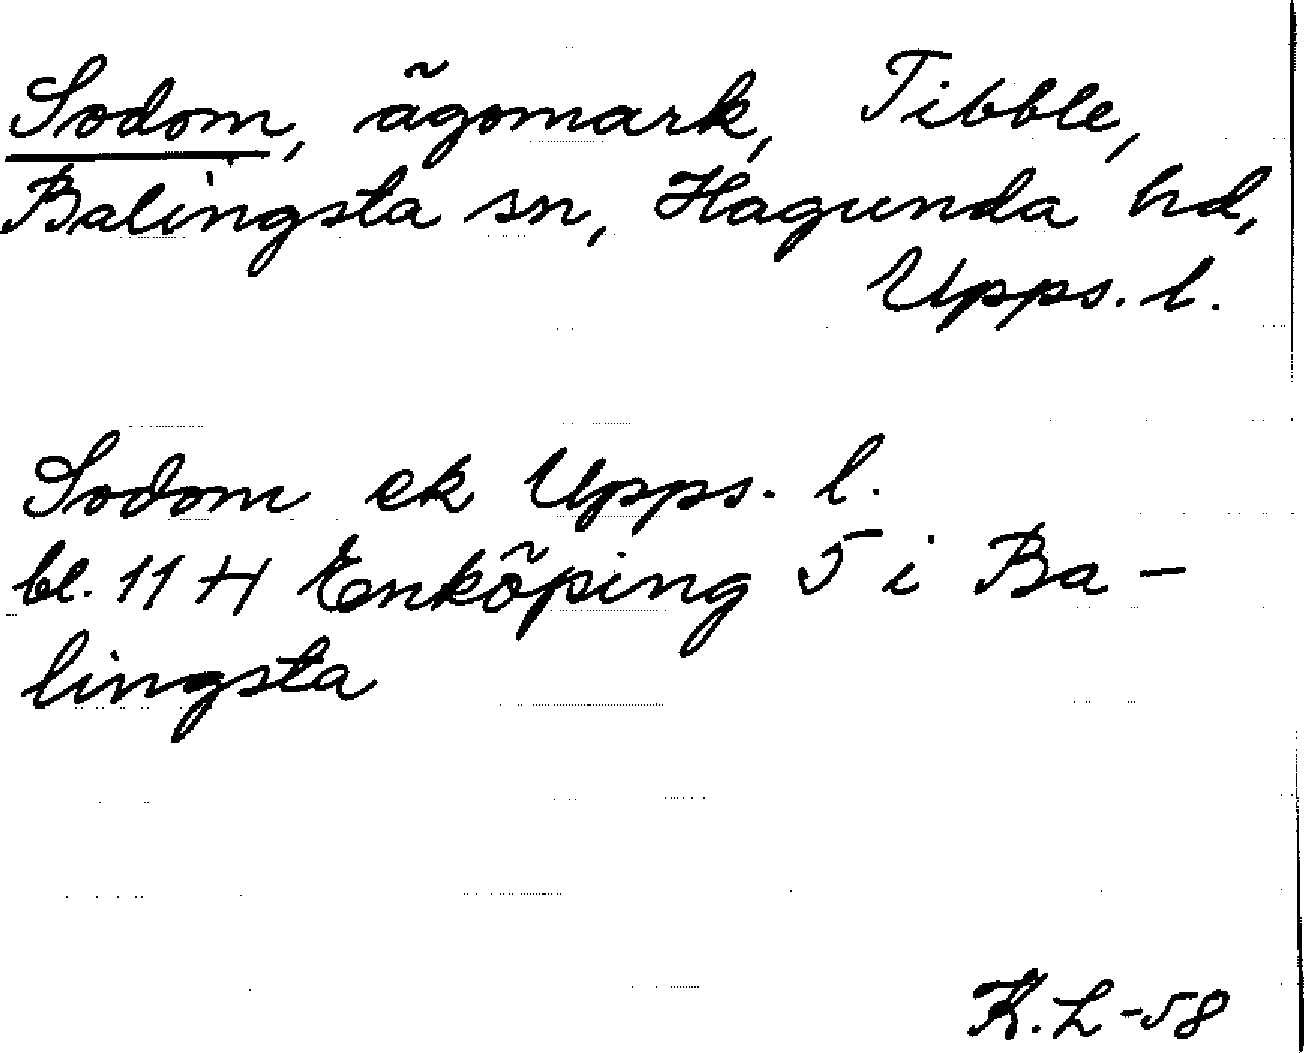 Sodom, ägomark, Tibble,
Balingsta sn, Hagunda hd,
Upps. l.
Sodom ek Upps. l.
bl. 11 H Enköping 5 i Ba-
lingsta
K.L-58